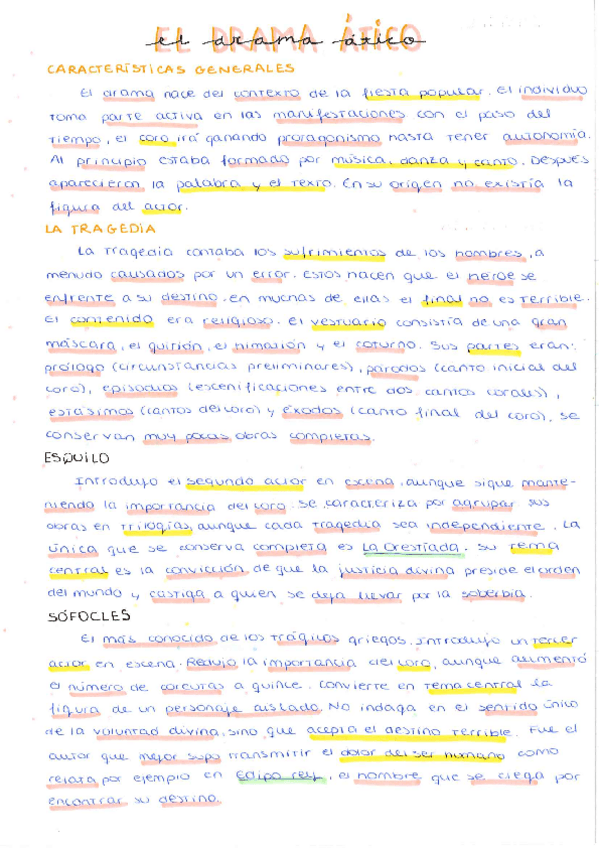 EL DRAMA ÁTICO
el drama ático
CARACTERÍSTICAS GENERALES
El drama nace del contexto de la fiesta popular. El individuo
toma parte activa en las manifestaciones con el paso del
tiempo, el coro irá ganando protagonismo hasta tener autonomía.
Al principio estaba formado por música, danza y canto. Después
aparecieron la palabra y el texto. En su origen no existía la
figura del actor.
LA TRAGEDIA
La tragedia contaba los sufrimientos de los hombres, a
menudo causados por un error. Estos hacen que el héroe se
enfrente a su destino. en muchas de ellas el final no es terrible.
El contenido era religioso. El vestuario consistía de una gran
máscara, el quitión, el himatión y el coturno. Sus partes eran:
prólogo (circunstancias preliminares), párodos (canto inicial del
coro), episodios (escenificaciones entre dos cantos corales),
estásimos (cantos del coro) y éxodos (canto final del coro). Se
conservan muy pocas obras completas.
ESQUILO
Introdujo el segundo actor en escena, aunque sigue mante-
niendo la importancia del coro. Se caracteriza por agrupar sus
obras en trilogías, aunque cada tragedia sea independiente. La
única que se conserva completa es La Orestíada. Su tema
central es la convicción de que la justicia divina preside el orden
del mundo y castiga a quien se deja llevar por la soberbia.
SÓFOCLES
El más conocido de los trágicos griegos. Introdujo un tercer
actor en escena. Redujo la importancia del coro, aunque aumentó
el número de coreutas a quince. Convierte en tema central la
figura de un personaje aislado. No indaga en el sentido único
de la voluntad divina, sino que acepta el destino terrible. Fue el
autor que mejor supo transmitir el dolor del ser humano como
relata por ejemplo en Edipo rey, el hombre que se ciega por
encontrar su destino.